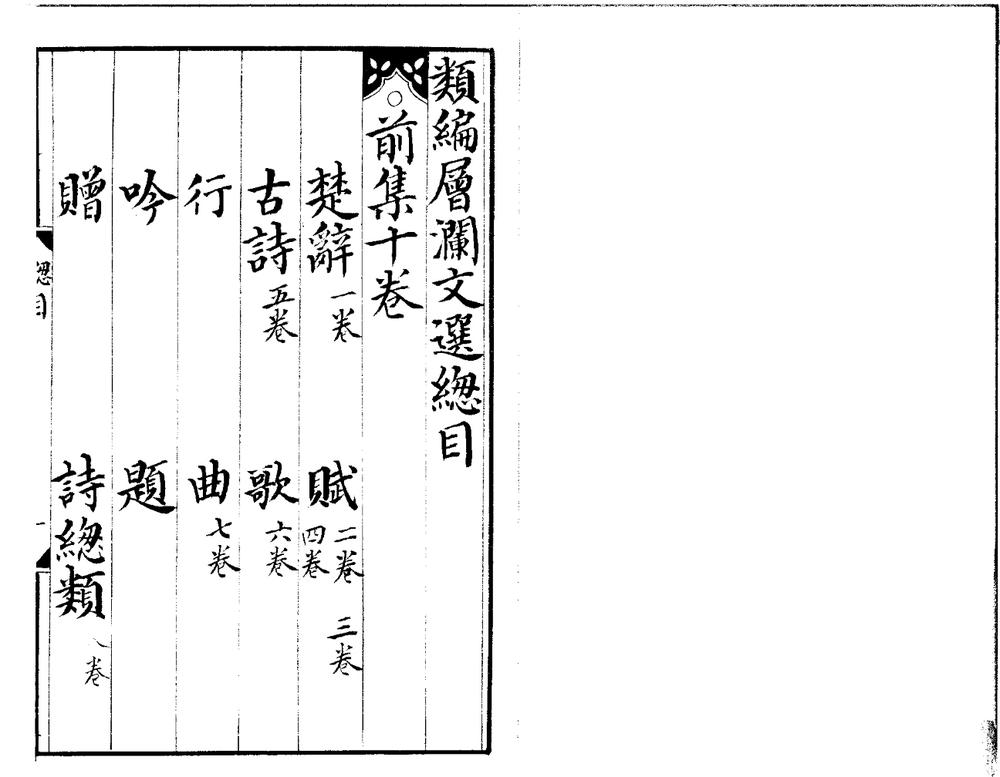 類編層瀾文選緫目
前集十卷
楚辭一卷 賦二卷 三卷 四卷
古詩五卷 歌六卷
行 曲七卷
吟 題
贈 詩緫類八卷
緫目
一